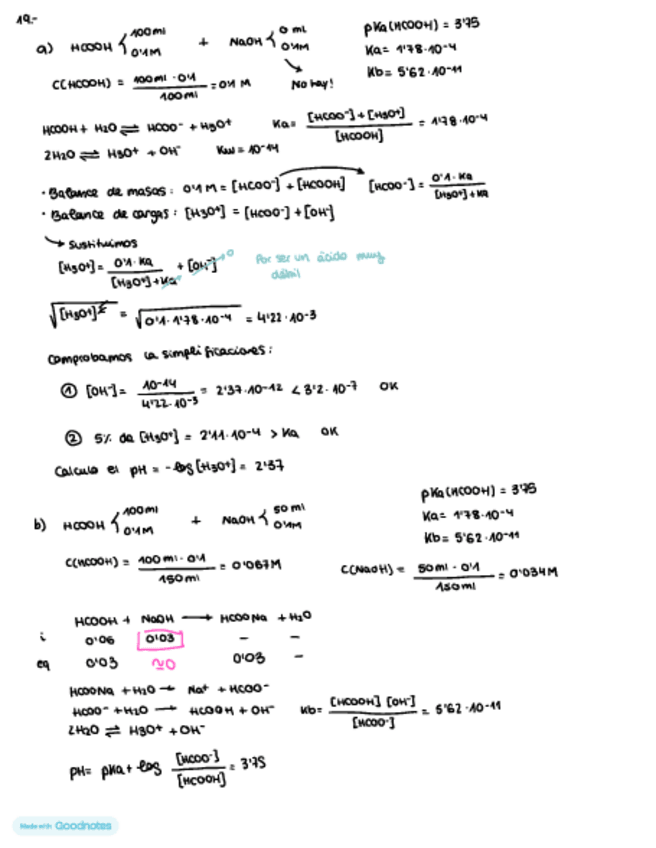 19.-
a) HCOOH { 100 ml 0'1M + NaOH { 0 ml 0'1M
pKa (HCOOH) = 3'75
Ka = 1'78·10-4
Kb = 5'62·10-11
C(HCOOH) = 100 ml · 0'1 / 100 ml = 0'1 M
No hay!
HCOOH + H2O ⇌ HCOO- + H3O+ Ka = [HCOO-] + [H3O+] / [HCOOH] = 1'78·10-4
2H2O ⇌ H3O+ + OH- Kw = 10-14
· Balance de masas: 0'1 M = [HCOO-] + [HCOOH] [HCOO-] = 0'1 · Ka / [H3O+] + Ka
· Balance de cargas: [H3O+] = [HCOO-] + [OH-]
↳ Sustituimos
[H3O+] = 0'1 · Ka / [H3O+] + Ka + [OH-] → 0 Por ser un ácido muy
débil
√[H3O+]2 = √0'1 · 1'78·10-4 = 4'22·10-3
Comprobamos la simplificaciones:
① [OH-] = 10-14 / 4'22·10-3 = 2'37·10-12 < 3'2·10-7 OK
② 5% de [H3O+] = 2'11·10-4 > Ka OK
Calculo el pH = -log [H3O+] = 2'37
b) HCOOH { 100 ml 0'1M + NaOH { 50 ml 0'1M
pKa (HCOOH) = 3'75
Ka = 1'78·10-4
Kb = 5'62·10-11
C(HCOOH) = 100 ml · 0'1 / 150 ml = 0'067M C(NaOH) = 50 ml · 0'1 / 150 ml = 0'034M
HCOOH + NaOH → HCOONa + H2O
i 0'06 0'03 - -
eq 0'03 ≈0 0'03 -
HCOONa + H2O → Na+ + HCOO-
HCOO- + H2O → HCOOH + OH- Kb = [HCOOH] [OH-] / [HCOO-] = 5'62·10-11
2H2O ⇌ H3O+ + OH-
pH = pKa + log [HCOO-] / [HCOOH] = 3'75
Made with Goodnotes